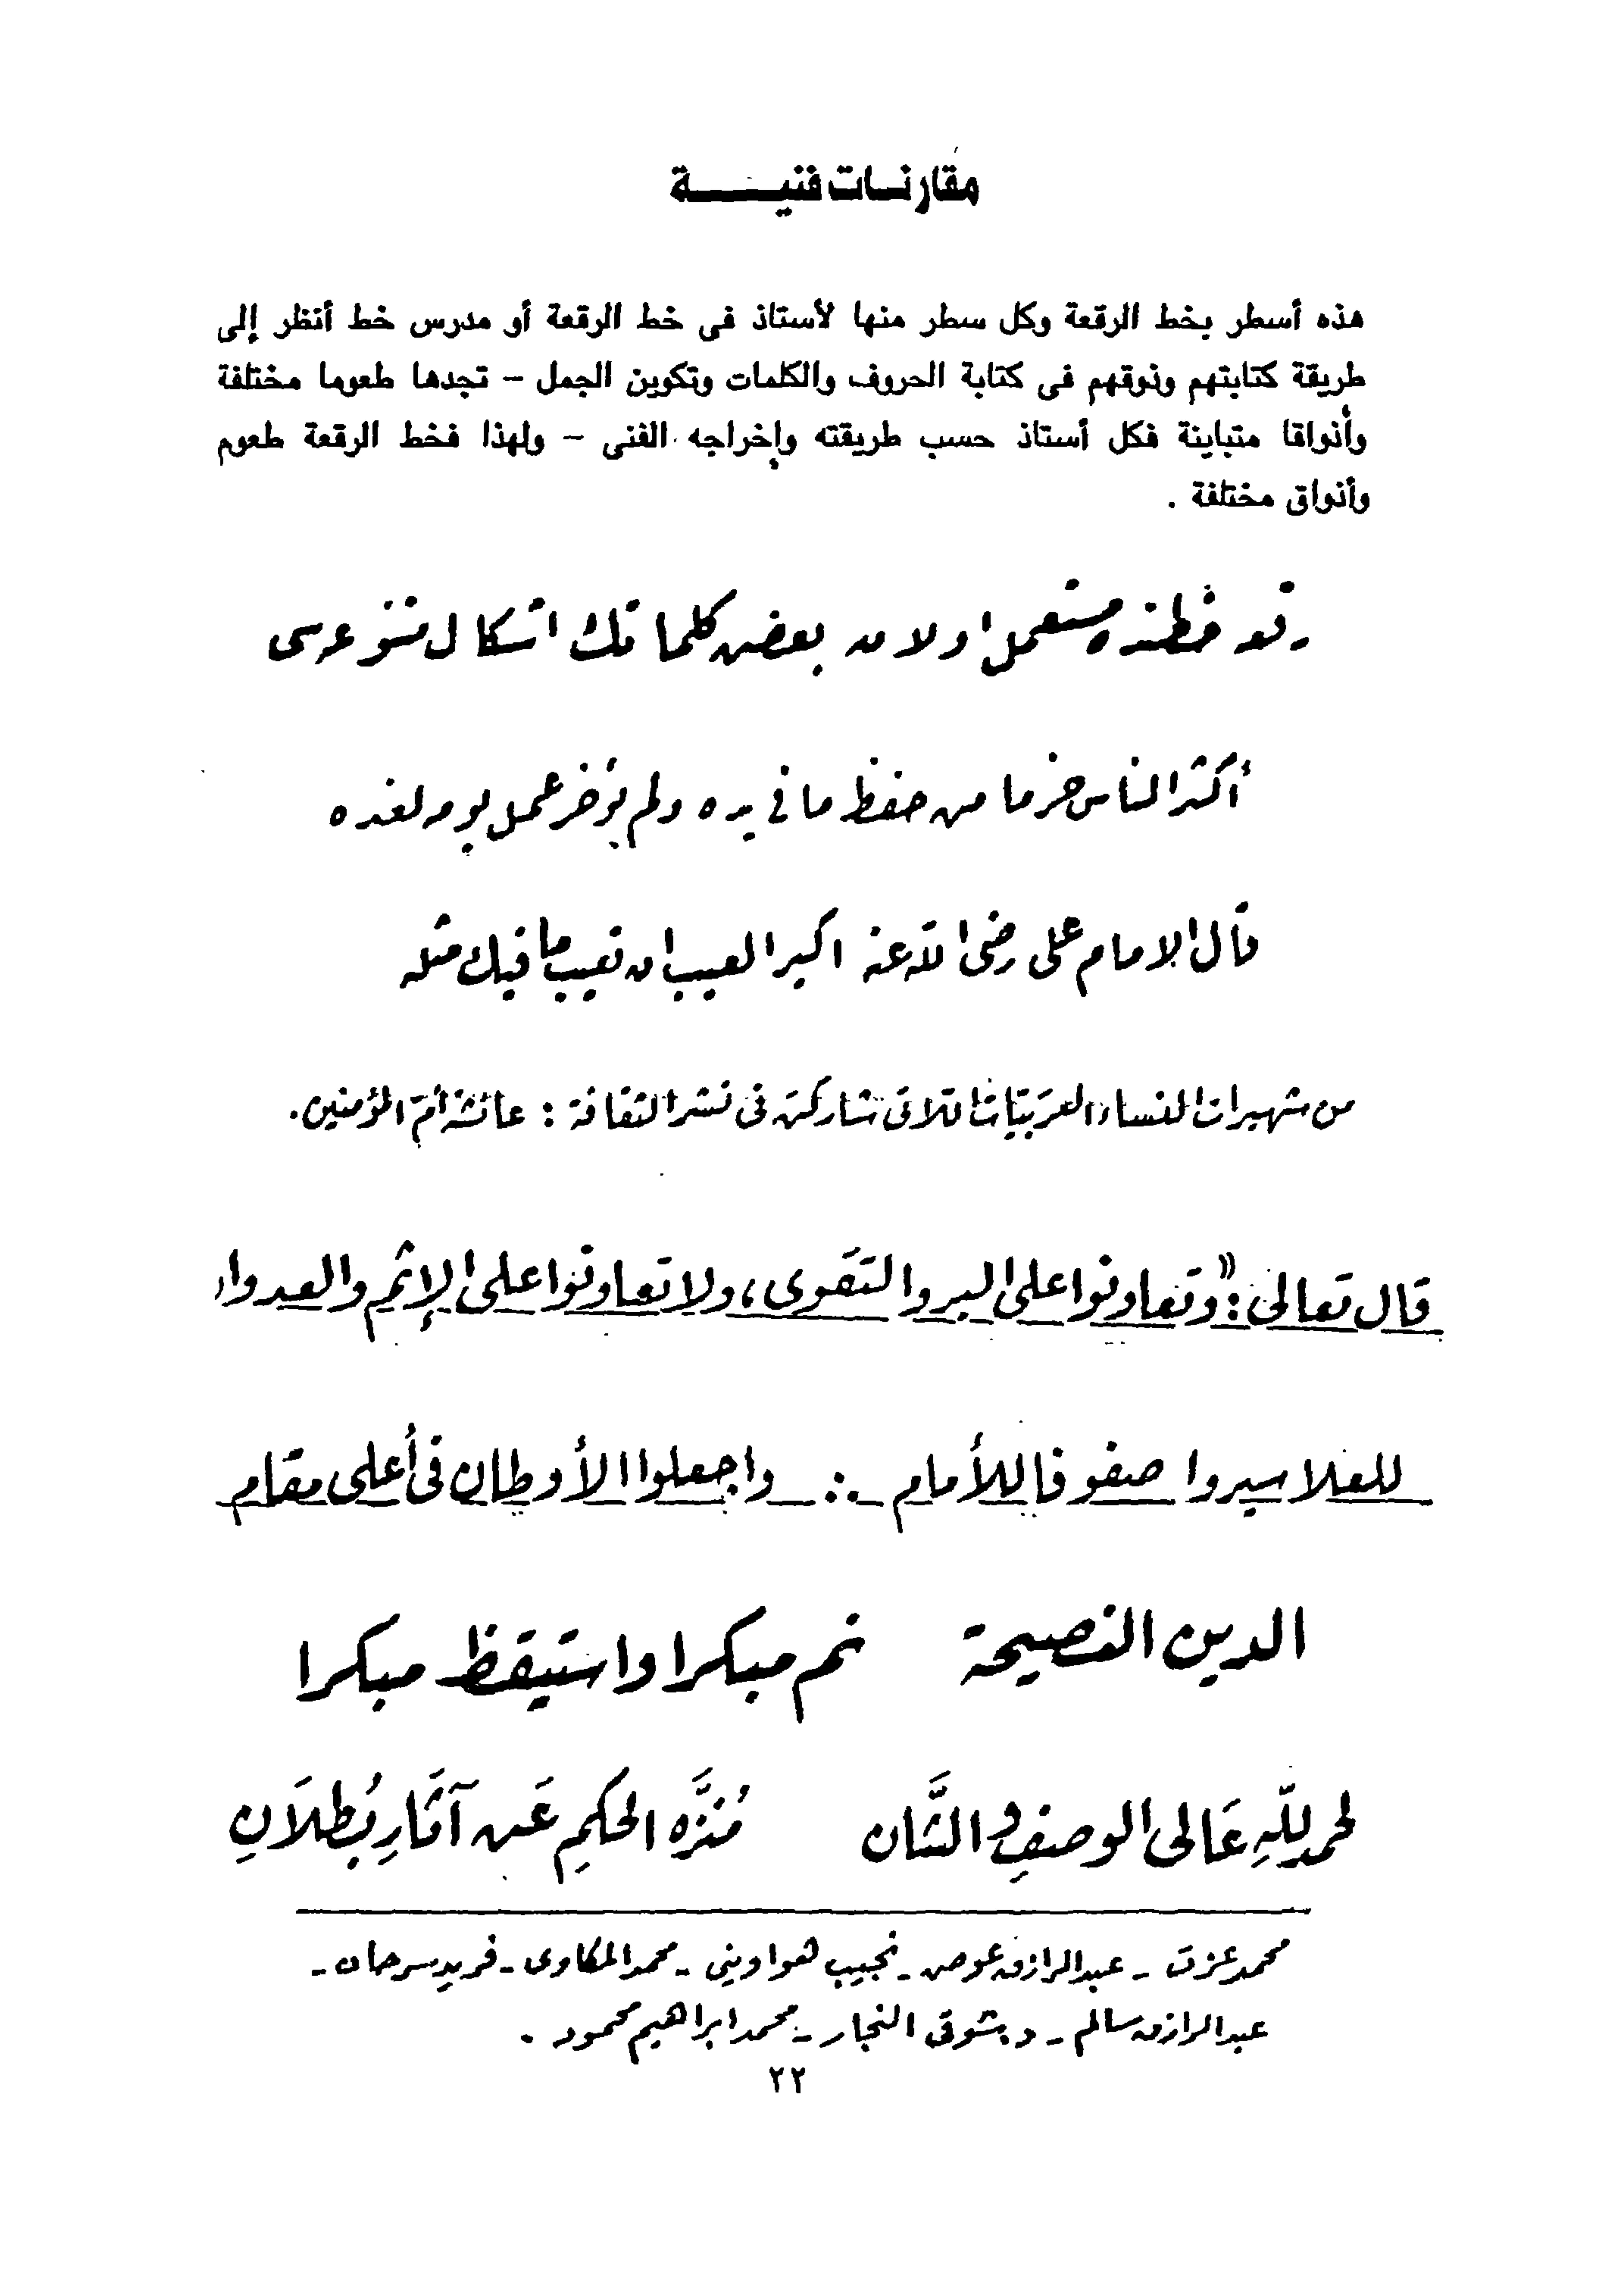 مقارنات فنية
هذه أسطر بخط الرقعة وكل سطر منها لأستاذ فى خط الرقعة أو مدرس خط أنظر إلى
طريقة كتابتهم وذوقهم فى كتابة الحروف والكلمات وتكوين الجمل – تجدها طعوما مختلفة
وأذواقا متباينة فكل أستاذ حسب طريقته وإخراجه الفنى – ولهذا فخط الرقعة طعوم
وأذواق مختلفة .
رقعه خطنده مستعمل اولان بعض كلماتك اشكال متنوعه سى
أكثر الناس حزما من حفظ ما في يده ولم يؤخر عمل يومه لغده
قال الامام على رضى الله عنه اكبر العيب ان تعيب ما فيك مثله
من شهيرات النساء العربيّات اللاتى شاركن فى نشر الثقافة : عائشة أمّ المؤمنين .
قال تعالى : «وتعاونوا على البر والتقوى ، ولا تعاونوا على الإثم والعدوا
للعلا سيروا صفوفا للأمام .:. واجعلوا الأوطان فى أعلى مقام
الدين النصيحة نم مبكرا واستيقظ مبكرا
لحمد للّهِ عَالى الوصفِ والشَّان مُنزَّه الحكمِ عَن آثَارِ بُطلاَنِ
محمد عزت - عبد الرازق عوض - نجيب هواوينى - محمد المكاوى - فريد سرحان -
عبد الرازق سالم - د. شوقى النجار - محمد ابراهيم محمود .
٢٢